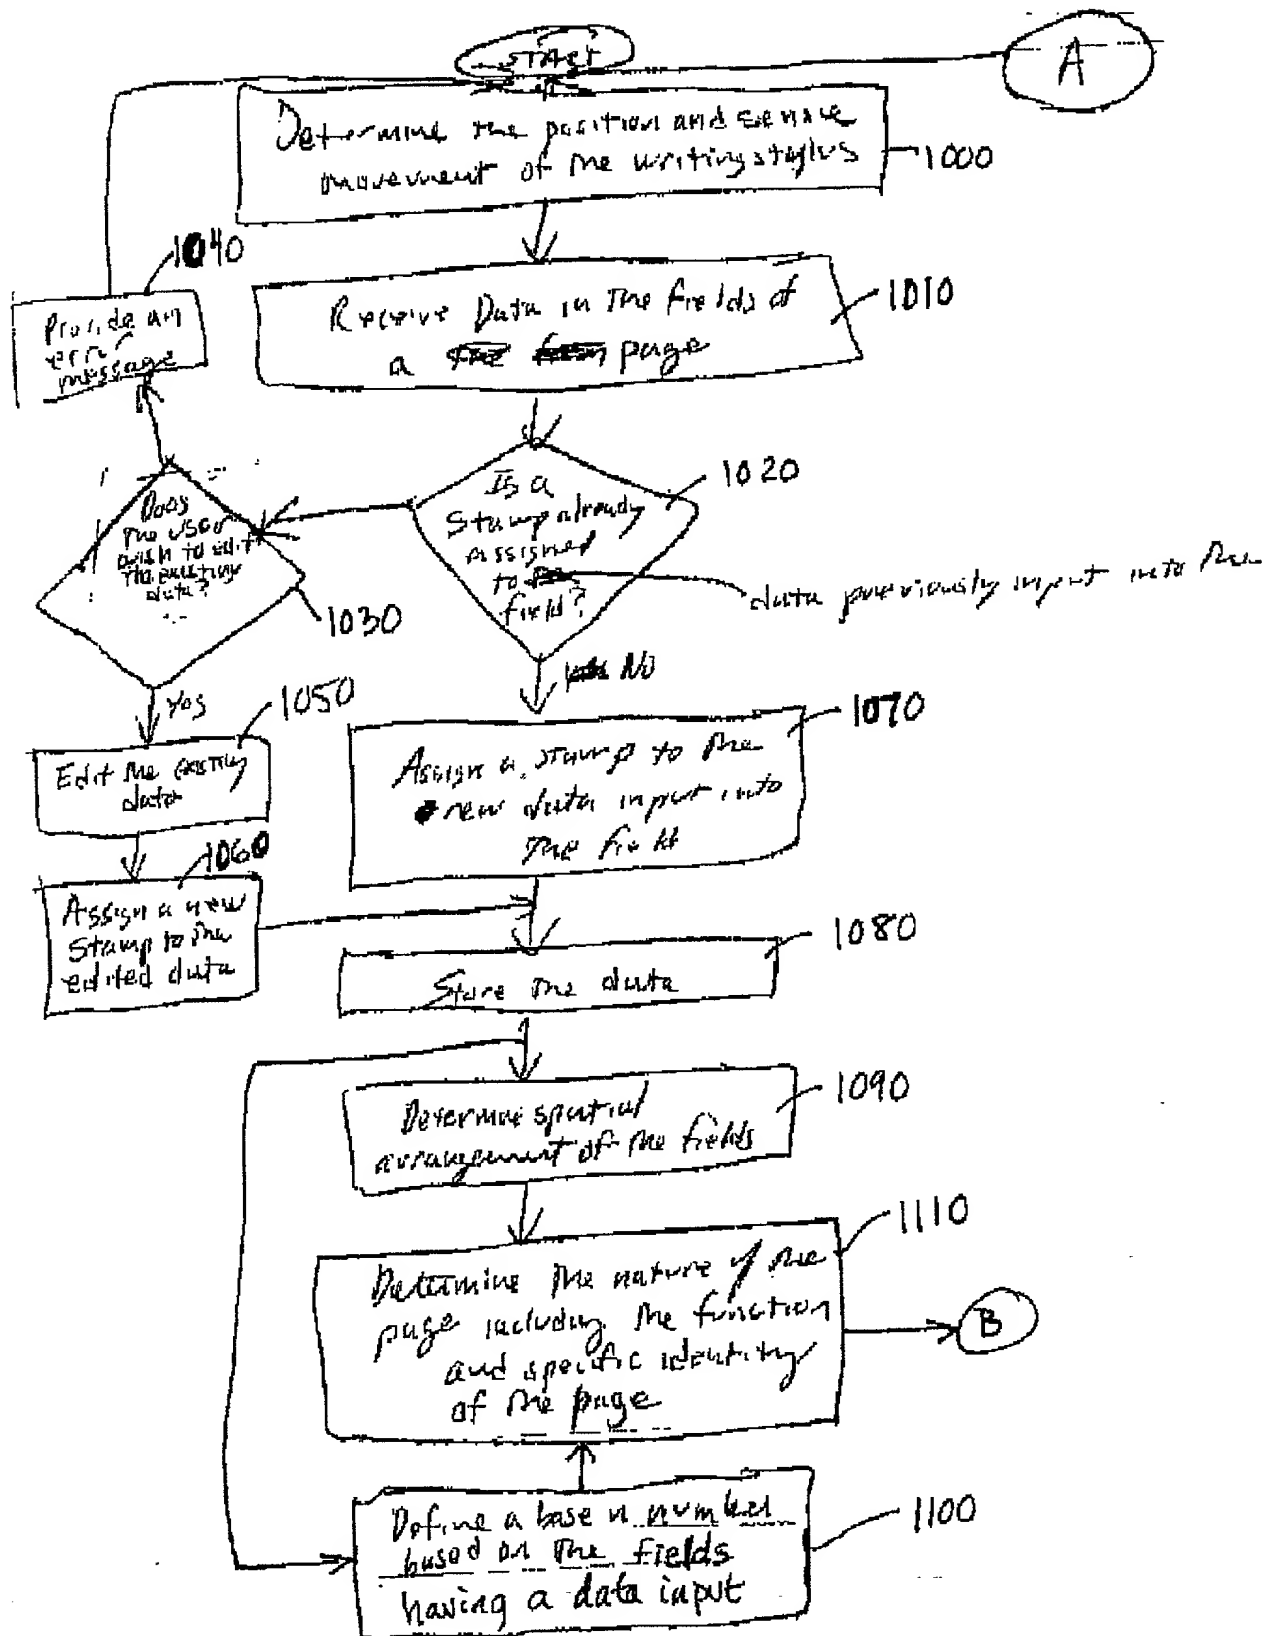 START
A
Determine the position and sense
movement of the writing stylus
1000
1040
Provide an
error
message
Receive Data in the fields of
a page
1010
Is a
Stamp already
Assigned
to
field?
1020
data previously input into the
Does
the user
wish to edit
the existing
data?
1030
No
Yes
1050
Edit the existing
data
1070
Assign a stamp to the
new data input into
the field
1060
Assign a new
stamp to the
edited data
1080
Store the data
1090
Determine spatial
arrangement of the fields
1110
Determine the nature of the
page including the function
and specific identity
of the page
B
Define a base n number
based on the fields
having a data input
1100